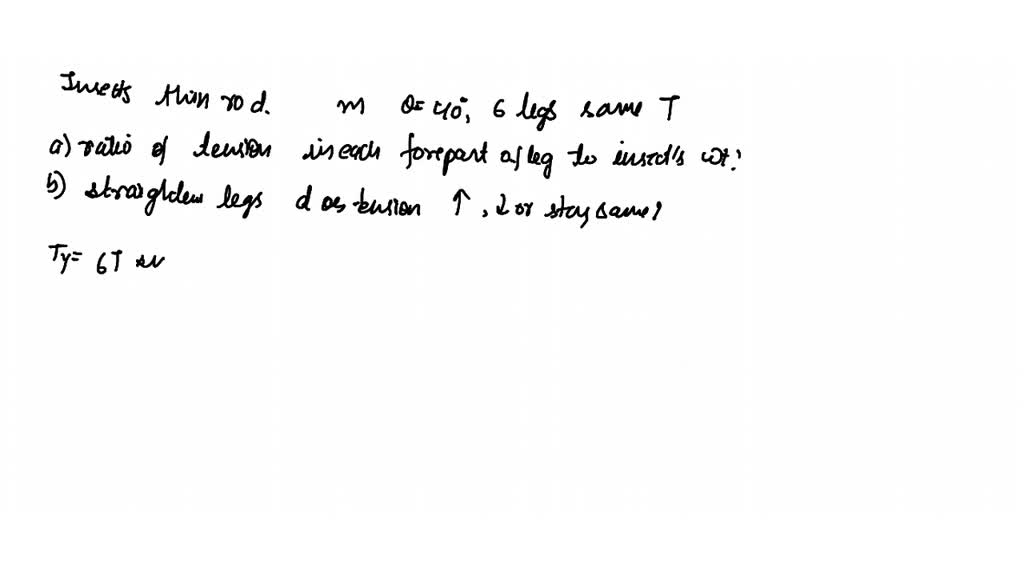 Insects thin rod. m θ=40°, 6 legs same T
a) ratio of tension in each forepart of leg to insect's wt?
b) straighten legs does tension ↑, ↓ or stay same?
Ty= 6T sin